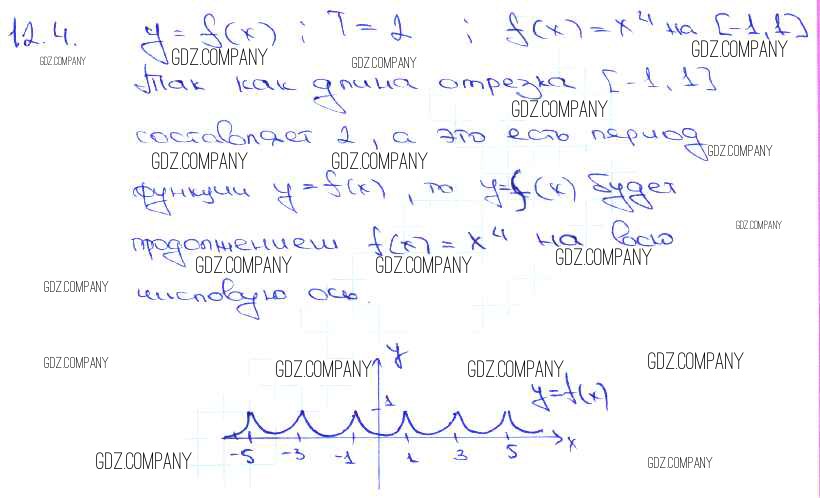 12.4. y = f(x) ; T = 2 ; f(x) = x⁴ на [-1, 1]
GDZ.COMPANY GDZ.COMPANY GDZ.COMPANY GDZ.COMPANY
Так как длина отрезка [-1, 1]
GDZ.COMPANY
составляет 2, а это есть период
GDZ.COMPANY GDZ.COMPANY GDZ.COMPANY
функции y = f(x), то y=f(x) будет
GDZ.COMPANY
продолжением f(x) = x⁴ на всю
GDZ.COMPANY GDZ.COMPANY GDZ.COMPANY
GDZ.COMPANY
числовую ось.
GDZ.COMPANY GDZ.COMPANY y GDZ.COMPANY GDZ.COMPANY
1 y=f(x)
-5 -3 -1 1 3 5 x
GDZ.COMPANY GDZ.COMPANY